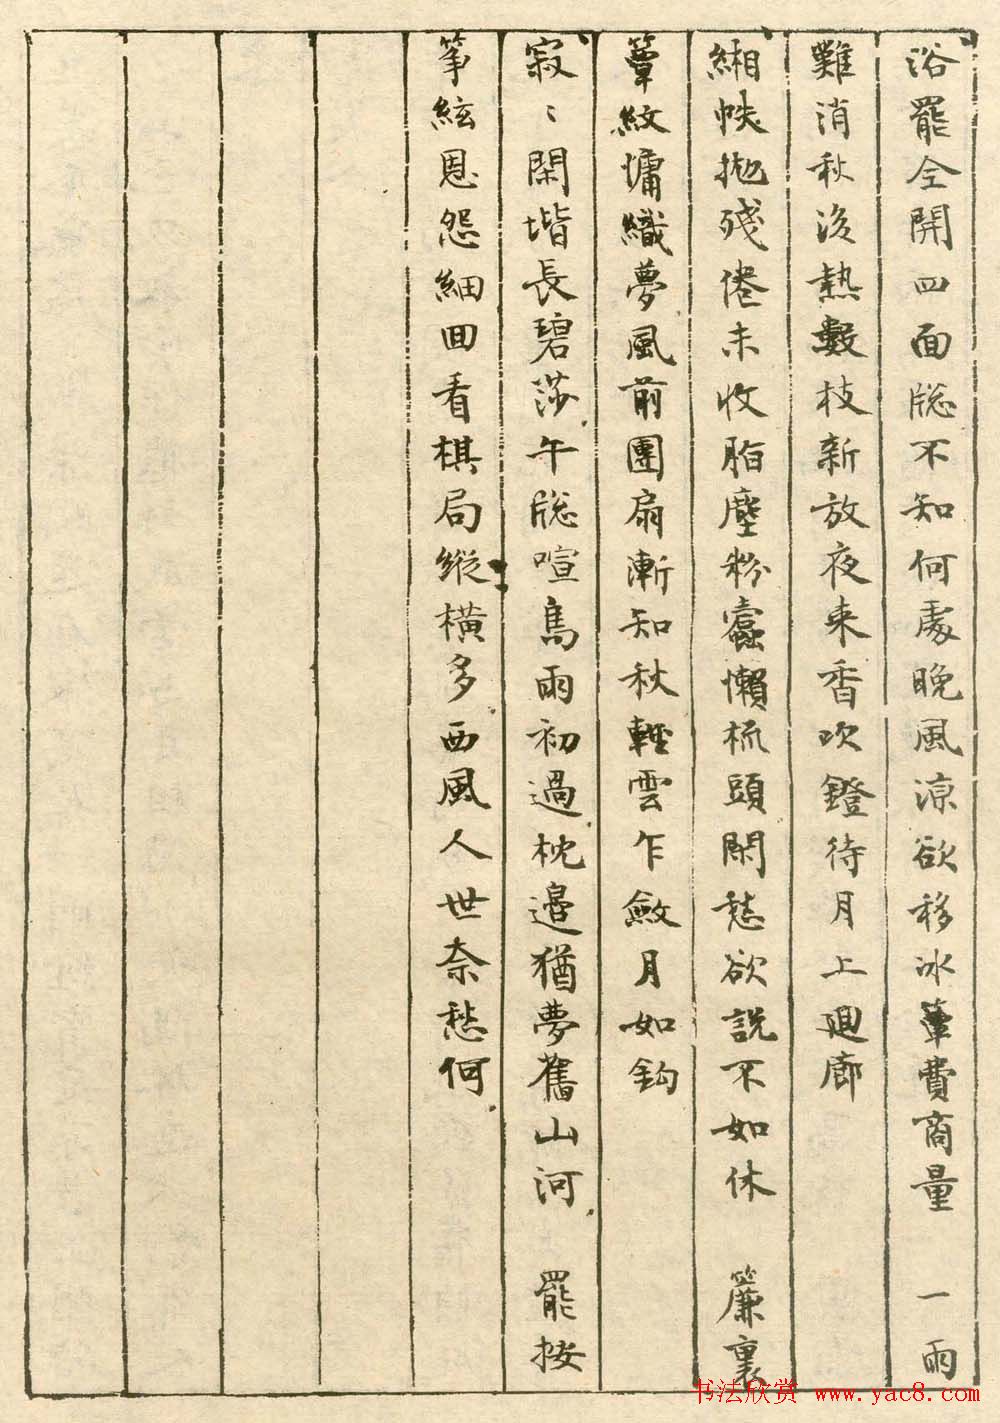 浴罷全開四面牕不知何處晚風涼欲移冰簟費商量　一雨
難消秋後熱數枝新放夜来香吹鐙待月上迴廊
緗帙抛殘倦未收脂塵粉蠹懶梳頭閑愁欲說不如休　簾裏
簟紋慵織夢風前團扇漸知秋輕雲乍斂月如鈎
寂〻閑堦長碧莎午牕喧鳥雨初過枕邊猶夢舊山河　罷按
筝絃恩怨細回看棋局縱橫多西風人世奈愁何
书法欣赏 www.yac8.com